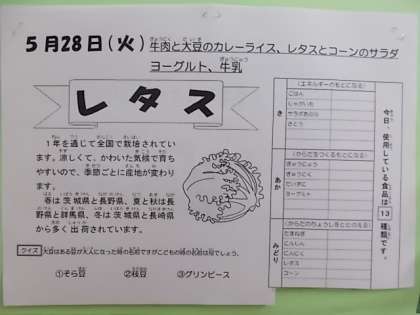 5月28日(火)牛肉と大豆のカレーライス、レタスとコーンのサラダ
ヨーグルト、牛乳
レタス
1年を通じて全国で栽培されてい
ます。涼しくて、かわいた気候で育ち
やすいので、季節ごとに産地が変わり
ます。
春は茨城県と長野県、夏と秋は長
野県と群馬県、冬は茨城県と長崎県
から多く出荷されています。
クイズ 大豆はある豆が大人になった時の名前ですがこどもの時の名前は何でしょう。
①そら豆 ②枝豆 ③グリンピース
今日、使用している食品は13種類です。
き
(エネルギーのもとになる)
ごはん
じゃがいも
サラダあぶら
さとう
あか
(からだをつくるもとになる)
ぎゅうにゅう
ぎゅうにく
だいず
ヨーグルト
みどり
(からだのちょうしをととのえる)
たまねぎ
にんじん
にんにく
レタス
コーン